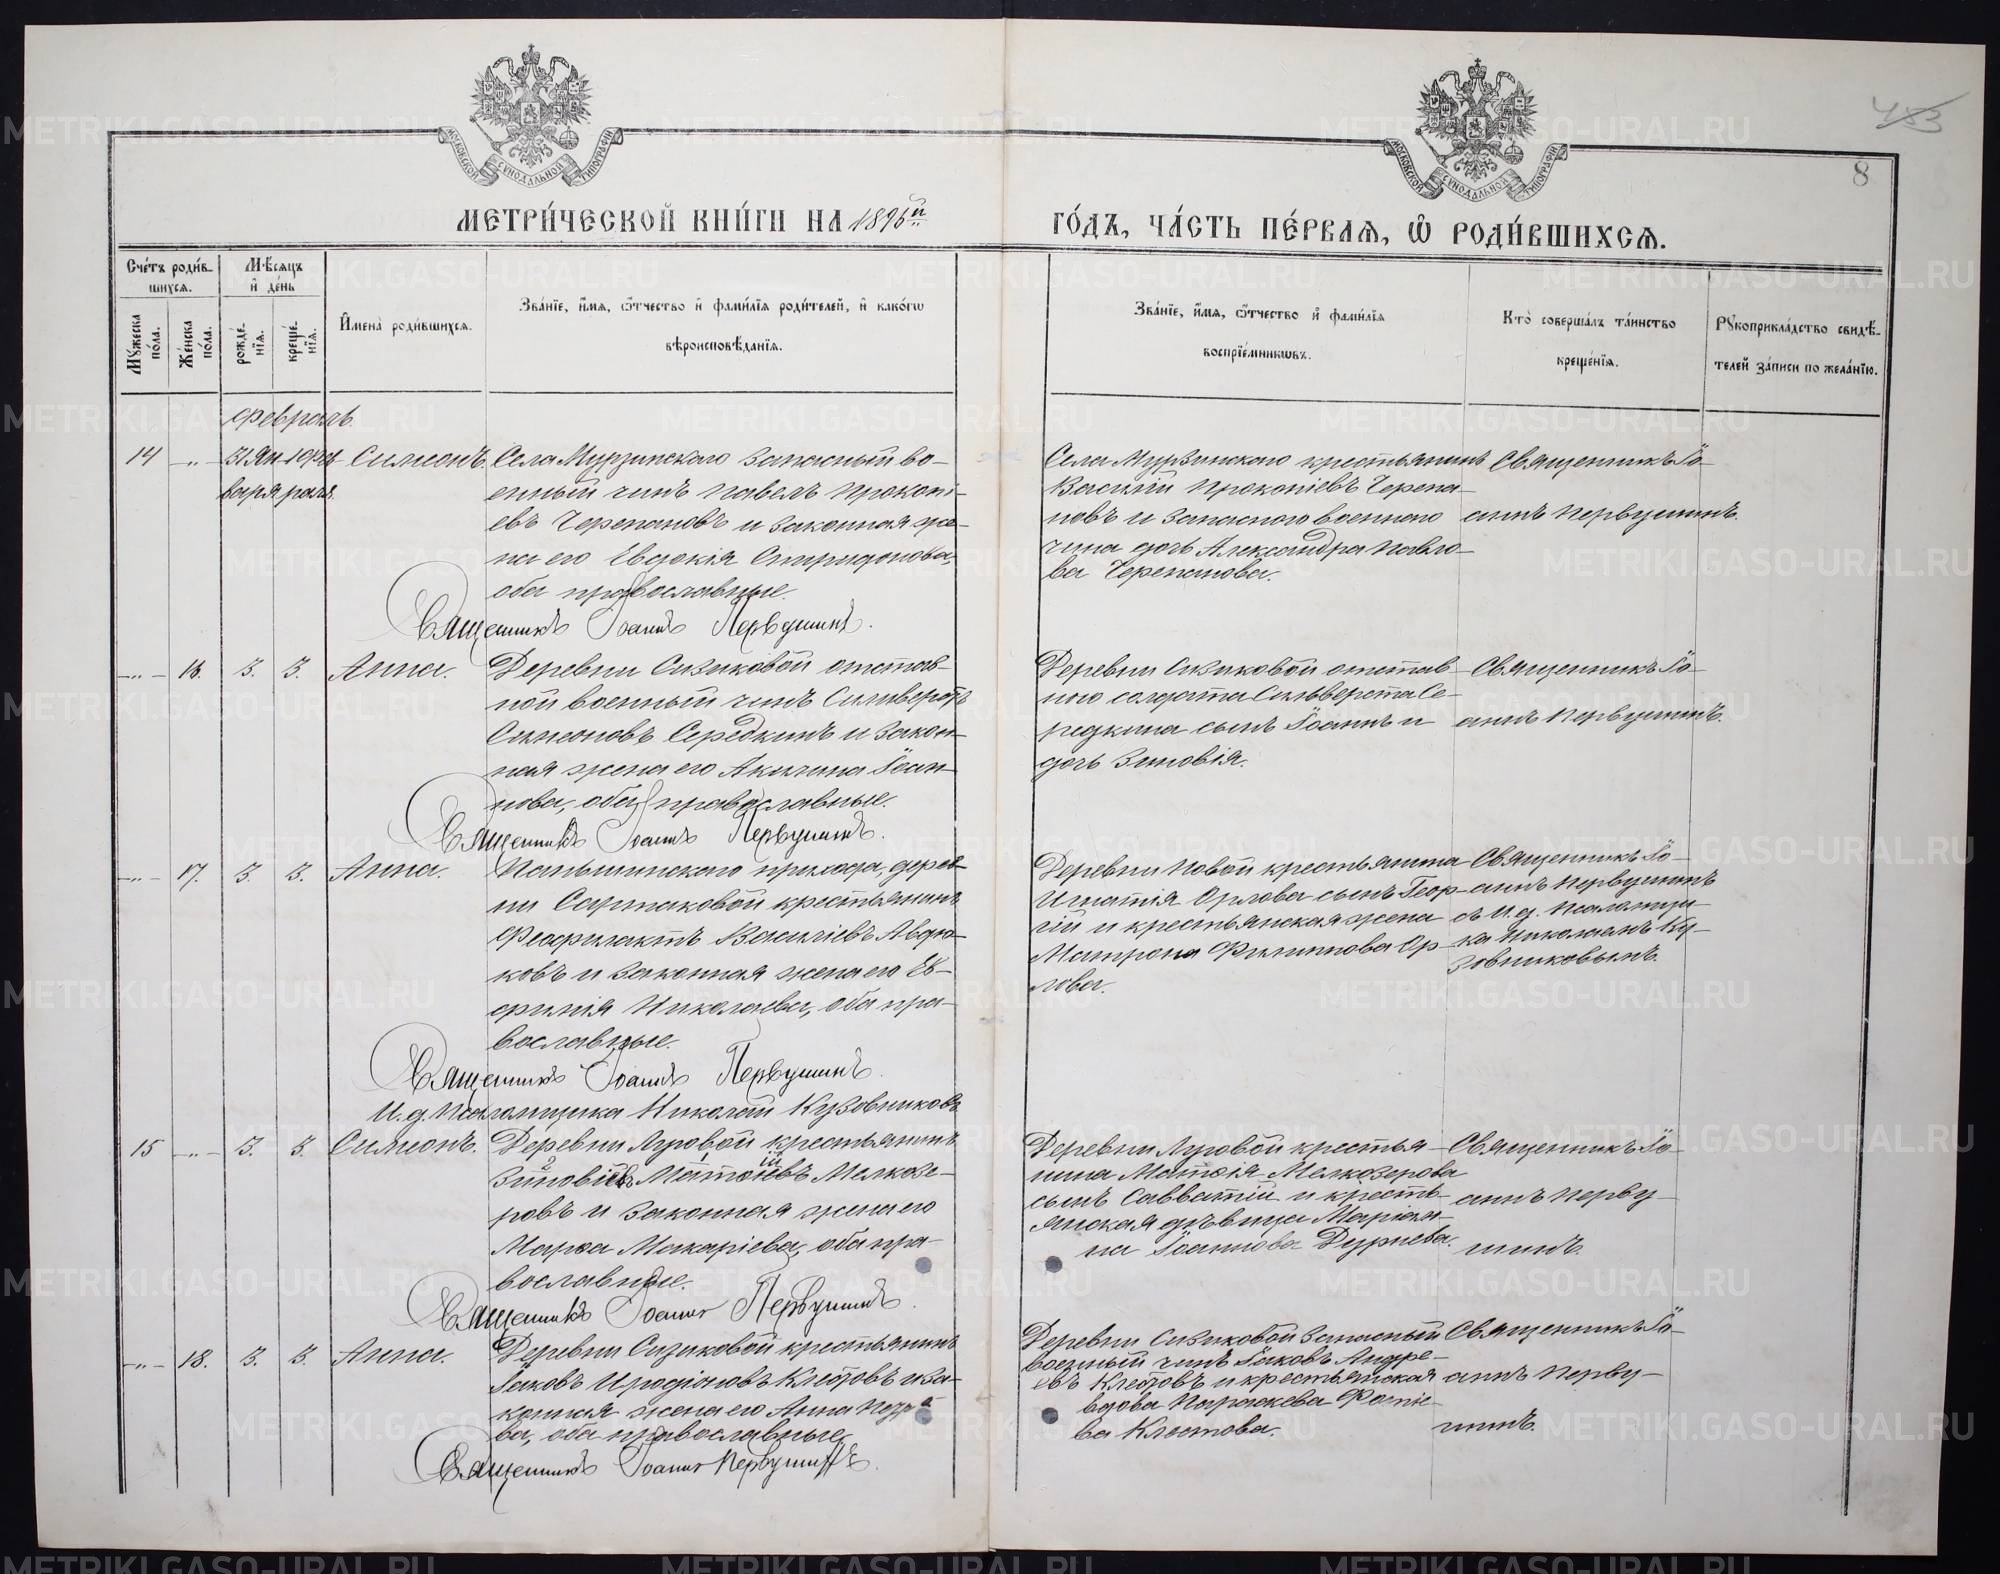 МОСКОВСКОЙ СѴНОДАЛЬНОЙ ТИПОГРАФІИ
МОСКОВСКОЙ СѴНОДАЛЬНОЙ ТИПОГРАФІИ
453
8
МЕТРИ́ЧЕСКОЙ КНИ́ГИ НА 1896й
ГО́ДЪ, ЧА́СТЬ ПЕ́РВАЯ, Ѡ РОДИ́ВШИХСЯ.
Сче́тъ роди́в-
шихся.
Мѣ́сяцъ
и де́нь
Мꙋ́жеска по́ла.
Же́нска по́ла.
рожде́-
нїя.
креще́-
нїя.
Имена̀ роди́вшихся.
Зва́нїе, и́мя, ѻ́тчество и фами́лїя роди́телей, и како́гѡ
вѣроисповѣ́данїя.
Зва́нїе, и́мя, ѻ́тчество и фами́лїя
воспрїе́мникѡвъ.
Кто̀ соверша́лъ та́инство
креще́нїя.
Рꙋкоприкла́дство свидѣ́-
телей за́писи по жела́нїю.
Февраль.
14 -"- 31 Ян- 1 Фев- Симеонъ. Села Мурзинскаго запасный во-
варя раля.
енный чинъ Павелъ Прокопі-
евъ Черепановъ и законная же-
на его Евдокія Спиридонова,
оба православные.
Священникъ Іоаннъ Первушинъ.
Села Мурзинскаго крестьянинъ
Василій Прокопіевъ Черепа-
новъ и запаснаго военнаго
чина дочь Александра Павло-
ва Черепанова.
Священникъ Іо-
аннъ Первушинъ.
-"- 16. 3. 3. Анна. Деревни Сизиковой отстав-
ной военный чинъ Силиверстъ
Симеоновъ Середкинъ и закон-
ная жена его Акилина Іоан-
нова, оба православные.
Священникъ Іоаннъ Первушинъ.
Деревни Сизиковой отстав-
ного солдата Сильверста Се-
редкина сынъ Іоаннъ и
дочь Зиновія.
Священникъ Іо-
аннъ Первушинъ.
-"- 17. 3. 3. Анна. Паньшинскаго прихода, дерев-
ни Сартаковой крестьянинъ
Феофилактъ Васильевъ Авдю-
ковъ и законная жена его Ев-
фимія Николаева, оба пра-
вославные.
Священникъ Іоаннъ Первушинъ.
И. д. Псаломщика Николай Кузовниковъ.
Деревни Новой крестьянина
Игнатія Орлова сынъ Геор-
гій и крестьянская жена
Матрона Филиппова Ор-
лова.
Священникъ Іо-
аннъ Первушинъ
съ И. д. Псаломщи-
ка Николаемъ Ку-
зовниковымъ.
15 -"- 3. 3. Симеонъ. Деревни Луговой крестьянинъ
Зиновій Матѳіевъ Мелкозе-
ровъ и законная жена его
Марѳа Макаріева, оба пра-
вославные.
Священникъ Іоаннъ Первушинъ.
Деревни Луговой крестья-
нина Матѳія Мелкозерова
сынъ Савватій и кресть-
янская дѣвица Маріам-
на Іоаннова Дурнева.
Священникъ Іо-
аннъ Перву-
шинъ.
-"- 18. 3. 3. Анна. Деревни Сизиковой крестьянинъ
Іаковъ Иродіоновъ Клестовъ и за-
конная жена его Анна Петро-
ва, оба православные.
Священникъ Іоаннъ Первушинъ.
Деревни Сизиковой запасный
военный чинъ Іаковъ Андре-
евъ Клестовъ и крестьянская
вдова Параскева Фотіе-
ва Клестова.
Священникъ Іо-
аннъ Перву-
шинъ.
METRIKI.GASO-URAL.RU